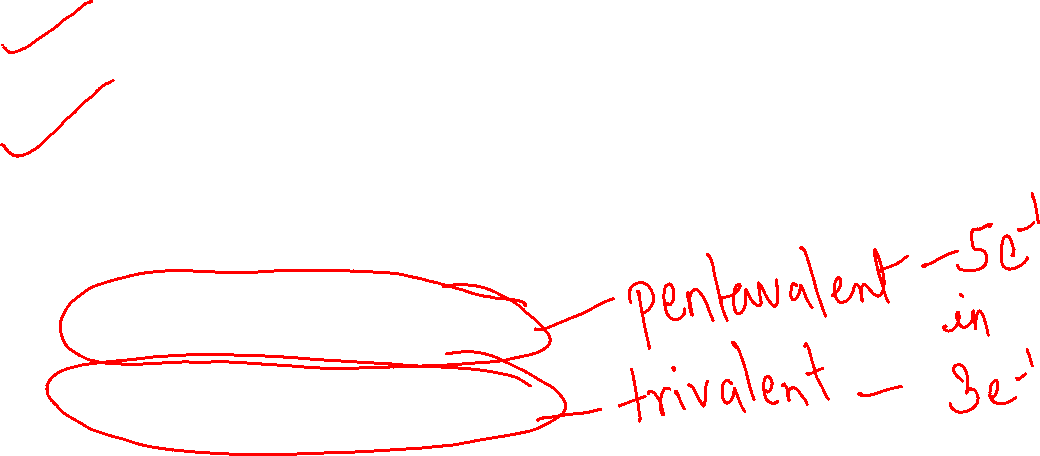 pentavalent - 5e⁻¹
in
trivalent - 3e⁻¹